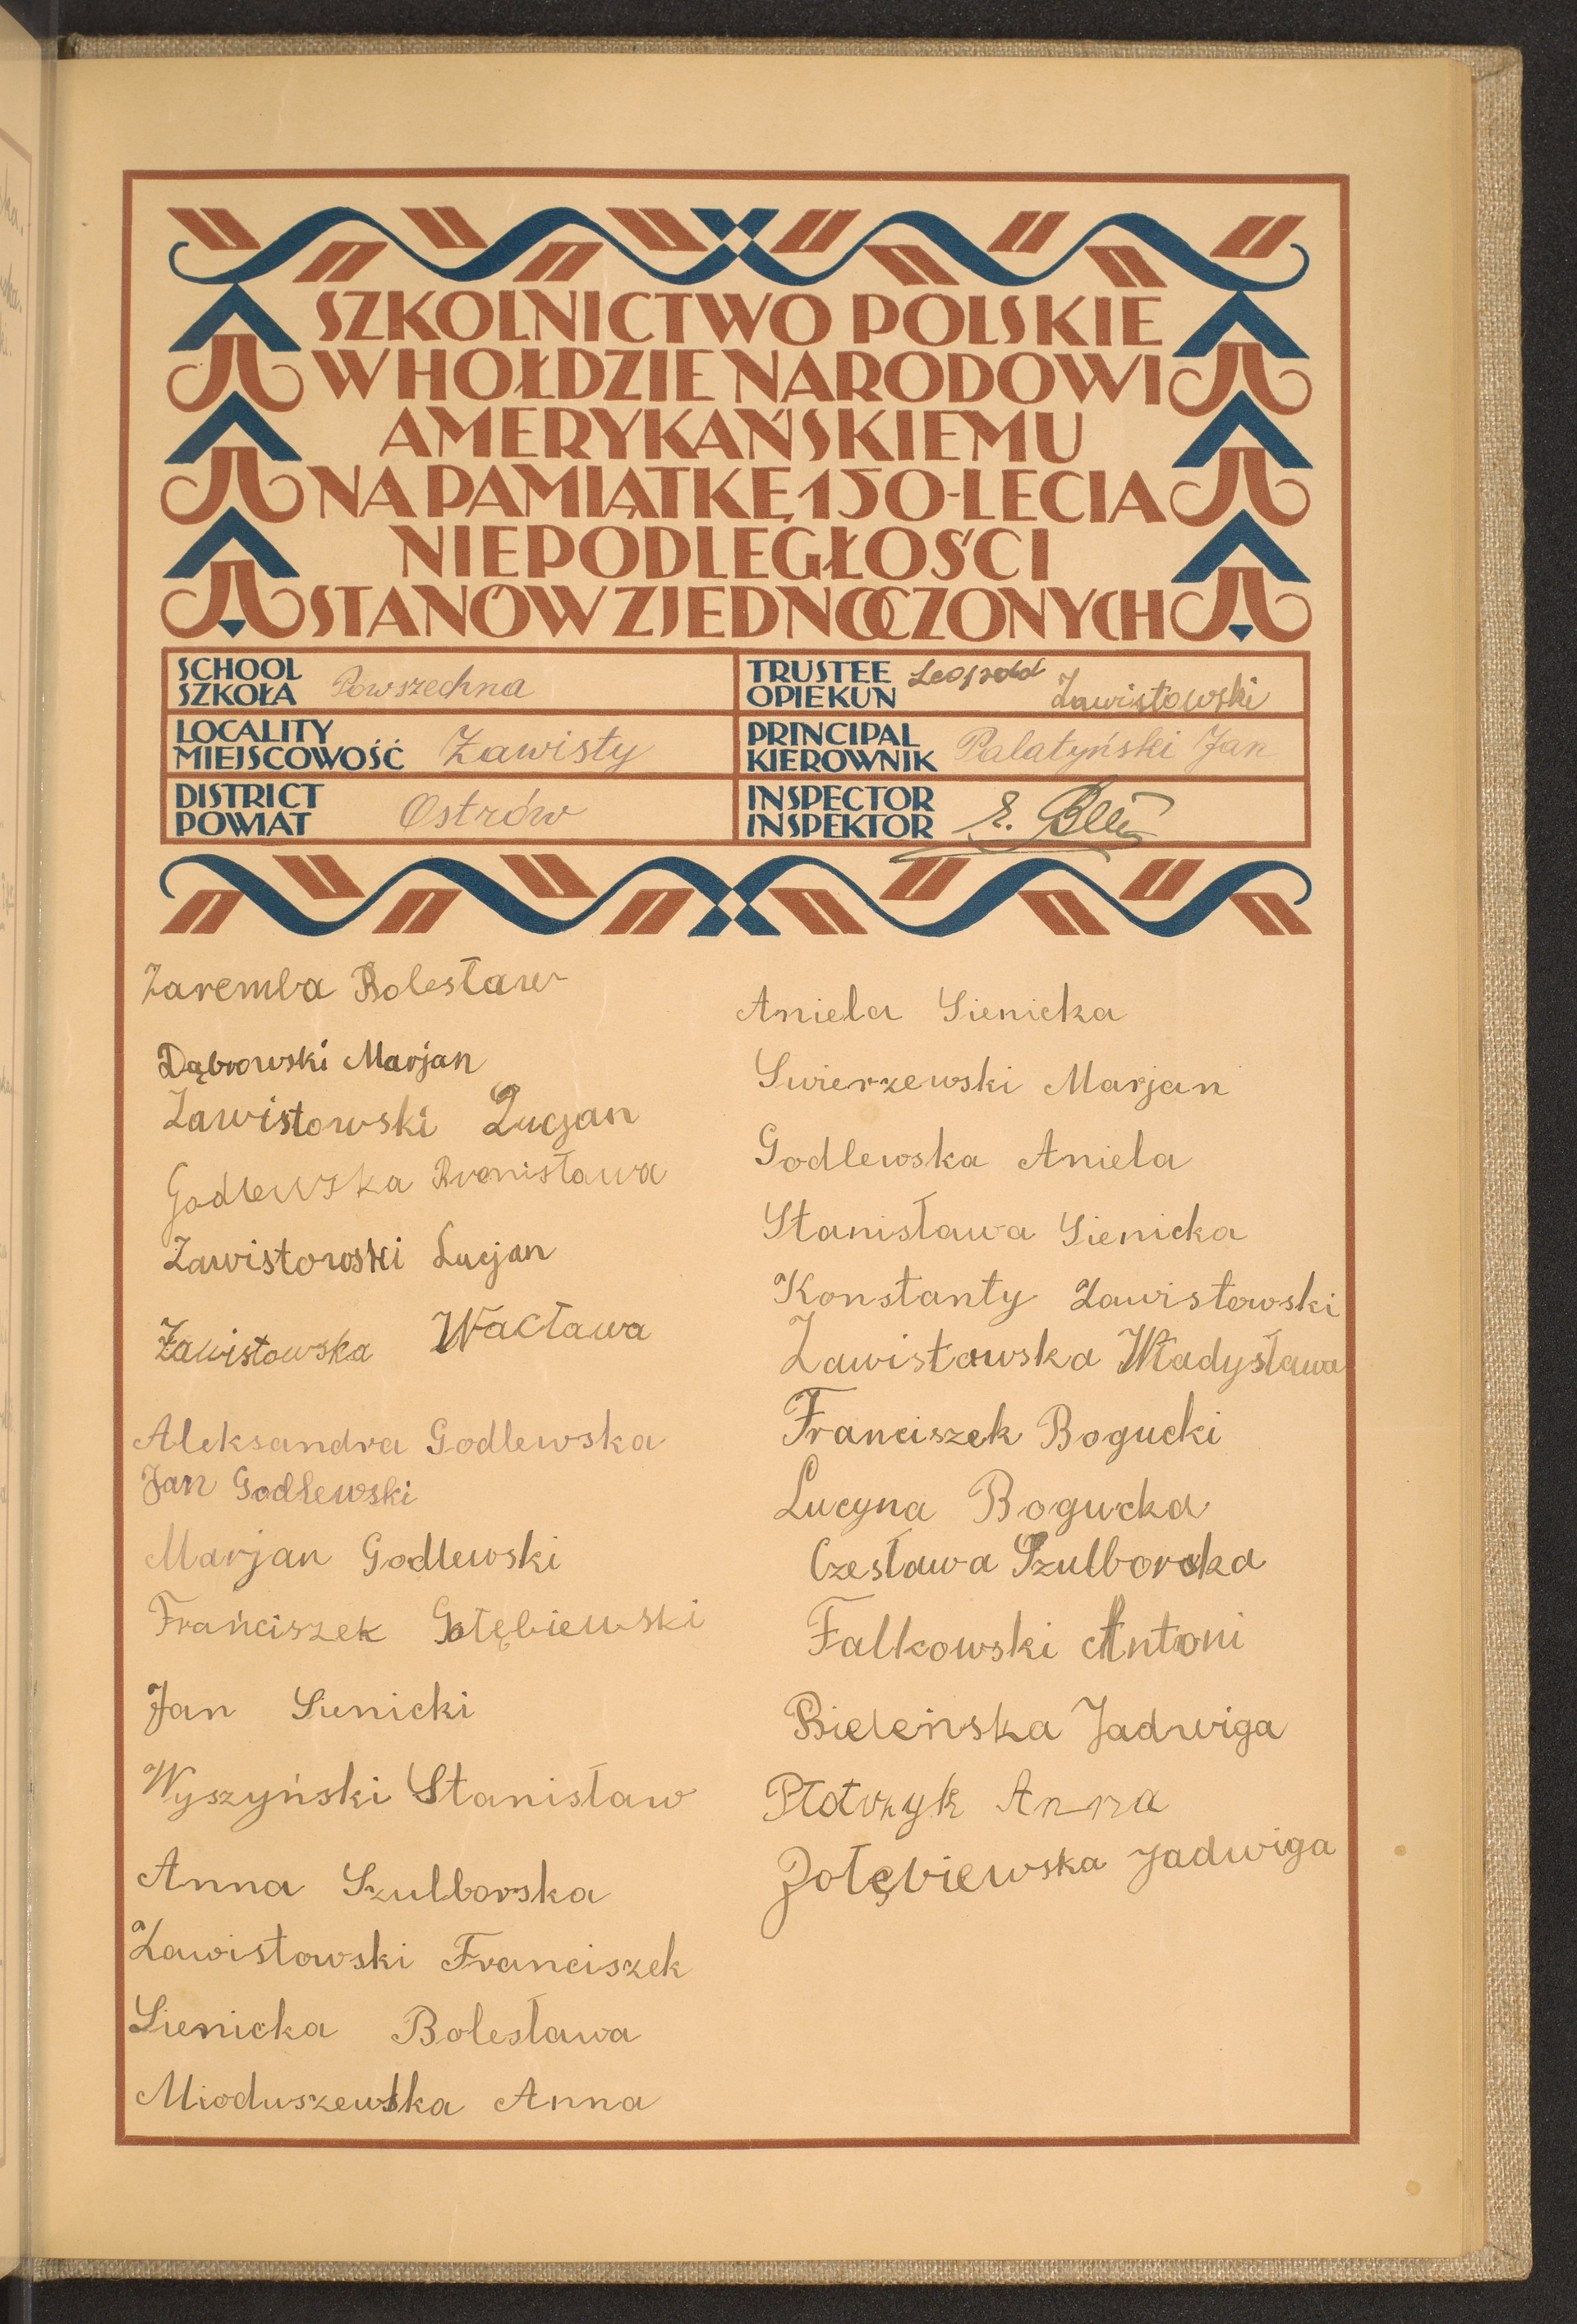 SZKOLNICTWO POLSKIE
W HOŁDZIE NARODOWI
AMERYKAŃSKIEMU
NA PAMIĄTKĘ 150-LECIA
NIEPODLEGŁOŚCI
STANÓW ZJEDNOCZONYCH
SCHOOL
SZKOŁA Powszechna
LOCALITY
MIEJSCOWOŚĆ Zawisty
DISTRICT
POWIAT Ostrów
TRUSTEE
OPIEKUN Leopold Zawistowski
PRINCIPAL
KIEROWNIK Palatyński Jan
INSPECTOR
INSPEKTOR
Zaremba Bolesław
Dąbrowski Marjan
Zawistowski Lucjan
Godlewska Bronisława
Zawistowski Lucjan
Zawistowska Wacława
Aleksandra Godlewska
Jan Godlewski
Marjan Godlewski
Franciszek Gołębiewski
Jan Sienicki
Wyszyński Stanisław
Anna Szulborska
Zawistowski Franciszek
Sienicka Bolesława
Mioduszewska Anna
Aniela Sienicka
Swierzewski Marjan
Godlewska Aniela
Stanisława Sienicka
Konstanty Zawistowski
Zawistowska Władysława
Franciszek Bogucki
Lucyna Bogucka
Czesława Szulborska
Falkowski Antoni
Bieleńska Jadwiga
Anna
Gołębiewska Jadwiga